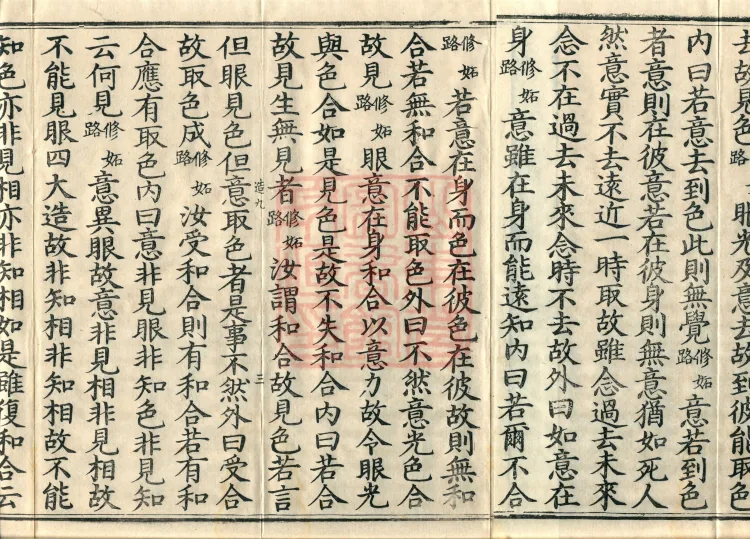 去故見色路眼光及意去故到彼能取
内曰若意去到色此則無覺修妬路意若到色
者意則在彼意若在彼身則無意猶如死人
然意實不去遠近一時取故雖念過去未來
念不在過去未來念時不去故外曰如意在
身修妬路意雖在身而能遠知内曰若爾不合
修妬路若意在身而色在彼色在彼故則無和
合若無和合不能取色外曰不然意光色合
故見修妬路眼意在身和合以意力故令眼光
與色合如是見色是故不失和合内曰若合
故見生無見者修妬路汝謂和合故見色若言
造九 三
但眼見色但意取色者是事不然外曰受合
故取色成修妬路汝受和合則有和合若有和
合應有取色内曰意非見眼非知色非見知
云何見修妬路意異眼故意非見相非見相故
不能見眼四大造故非知相非知相故不能
知色亦非見相亦非知相如是雖復和合云